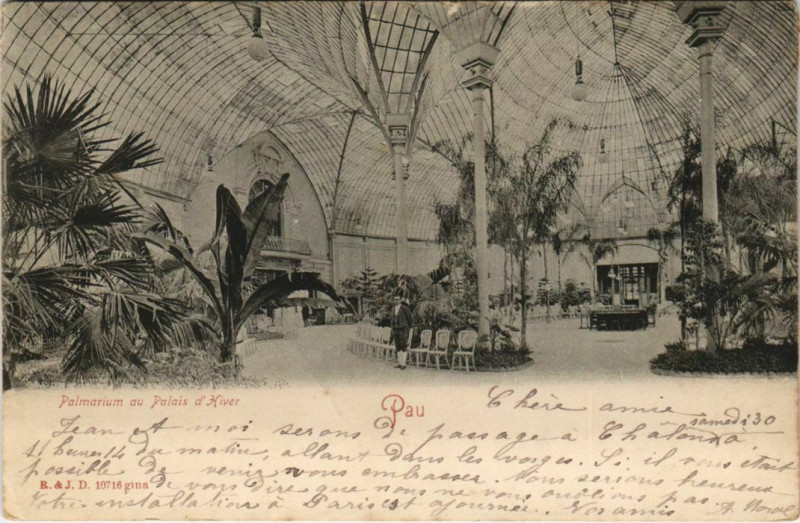 Palmarium au Palais d'Hiver
Pau
Chère amie
Jean et moi serons de passage à Chalons samedi 30
à 11 heures 14 du matin, allant dans les vosges. Si il vous était
possible de venir nous embrasser. Nous serions heureux
R. & J. D. 10716 gina
de vous dire que nous ne vous oublions pas.
Notre installation à Paris est ajournée. Vos amis